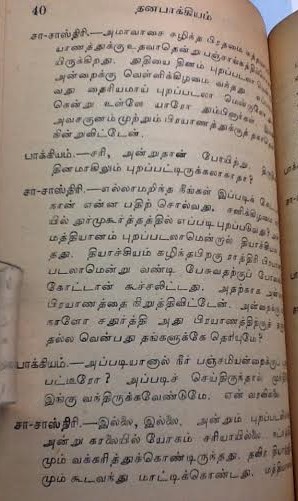 40 தனபாக்கியம்
சா-சாஸ்திரி.—அமாவாசை கழிந்த பிரதமை
யாணத்துக்கு உதவாதென்று பஞ்சாங்கத்தி
யிருகிறது. அதியை தினம் புறப்படலா
அன்றைக்கு வெள்ளிக்கிழமை வந்தது.
வது தைரியமாய் புறப்படலா
கென்று உள்ளே யாரோ தும்பினார்கள்
அவசகுனமும்பிரயாணத்துக்குத்
நின்றுவிட்டேன்.
பாக்கியம்.—சரி, அன்றுதான் போயிற்று.
தினமாகிலும் புறப்பட்டிருக்கலாகாதா?
சா-சாஸ்திரி.—எல்லாமறிந்த நீங்கள் இப்படிக்
நான் என்ன பதிற் சொல்வது. சனிக்கிழமை
யில் துர்முகூர்த்தத்தில் எப்படி புறப்படுவது?
மத்தியானம் புறப்படலாமென்றால் தியாச்சி
தது. தியாச்சியம் கழிந்தபிறகு ராத்திரி பிரயா
படலாமென்று வண்டி பேசுவதற்குப் போ
கோட்டான் கூச்சலிட்டது. அதற்காக அன்
பிரயாணத்தை நிறுத்திவிட்டேன். அன்றைக்கு
நாளோ சதுர்த்தி அது பிரயாணத்திற்குத்
தல்ல வென்பது தங்களுக்கே தெரியுமே?
பாக்கியம்.—அப்படியானால் நீர் பஞ்சமியன்றைக்குப்
பட்டீரோ? அப்படிச் செய்திருந்தால்
இங்கு வந்திருக்கவேண்டுமே. என் வரவில்லை
சா-சாஸ்திரி.—இல்லை, இல்லை. அன்றும் புறப்பட
அன்று காலையில் யோகம் சரியாயில்லை.
மும் வக்கரித்துக்கொண்டிருந்தது. தவிர
மும் கூடவந்து மாட்டிக்கொண்டது.